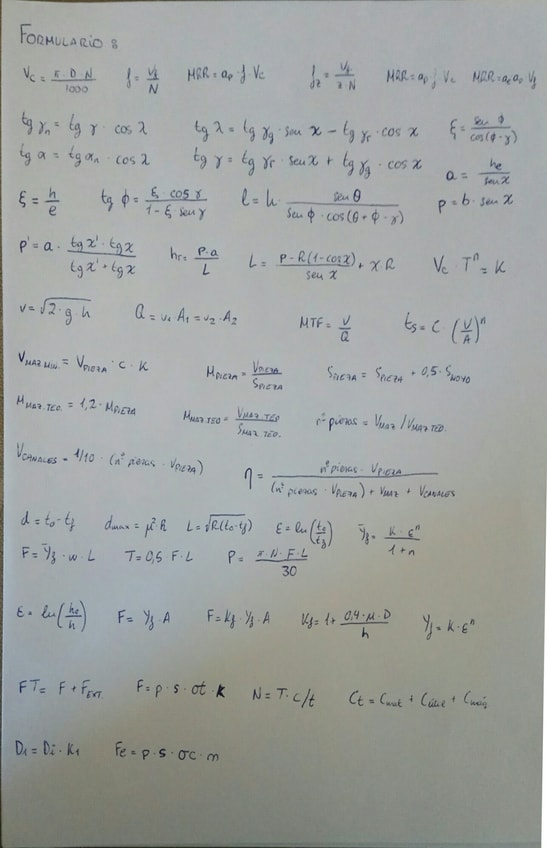 FORMULARIO 8
Vc = π·D·N / 1000   f = Vf / N   MRR = ap · f · Vc   fz = Vf / z·N   MRR = ap f Vc   MRR = ae ap Vf
tg γn = tg γ · cos λ   tg λ = tg γg · sen x − tg γr · cos x   ξ = sen φ / cos(φ−γ)
tg α = tg αn · cos λ   tg γ = tg γr · sen x + tg γg · cos x   a = he / sen x
ξ = h / e   tg φ = ξ · cos γ / 1 − ξ sen γ   l = h · sen θ / sen φ · cos(θ + φ − γ)   p = b · sen x
p' = a · tg x' · tg x / tg x' + tg x   hr = p·a / L   L = p − R(1−cos x) / sen x + x·R   Vc · Tⁿ = K
v = √2·g·h   Q = v1 A1 = v2 · A2   MTF = V / Q   ts = C · (V/A)ⁿ
VMAZ MIN. = VPIEZA · C · K   MPIEZA = VPIEZA / SPIEZA   SPIEZA = SPIEZA + 0,5 · SNOYO
MMAZ.TEO. = 1,2 · MPIEZA   MMAZ.TEO = VMAZ.TEO / SMAZ.TEO.   nº piezas = VMAZ / VMAZ TEO.
VCANALES = 1/10 · (nº piezas · VPIEZA)   η = nº piezas · VPIEZA / (nº piezas · VPIEZA) + VMAZ + VCANALES
d = to − tf   dmax = μ² · R   L = √R(to−tf)   ε = ln(to/tf)   Ȳf = K · εⁿ / 1+n
F = Ȳf · w · L   T = 0,5 F · L   P = π·N·F·L / 30
ε = ln(ho/h)   F = Yf · A   F = Kf · Yf · A   Kf = 1 + 0,4·μ·D / h   Yf = K · εⁿ
FT = F + FEXT.   F = p · s · σt · K   N = T · c/t   Ct = Cmat + Cútil + Cmáq
D1 = Di · K1   Fe = p · s · σc · m